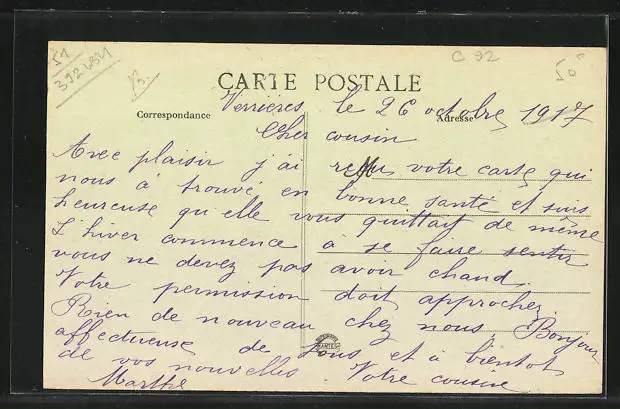 51
392481
B.
C 92
50 F
CARTE POSTALE
Correspondance
Adresse
Verrières le 26 octobre 1917
Cher cousin
Avec plaisir j'ai reçu votre carte qui
nous à trouvé en bonne santé et suis
heureuse qu'elle vous quittait de même
L'hiver commence à se faire sentir
vous ne devez pas avoir chaud.
Votre permission doit approcher
Rien de nouveau chez nous, Bonjour
affectueuse de tous et à bientot
de vos nouvelles Votre cousine
Marthe
NANTES